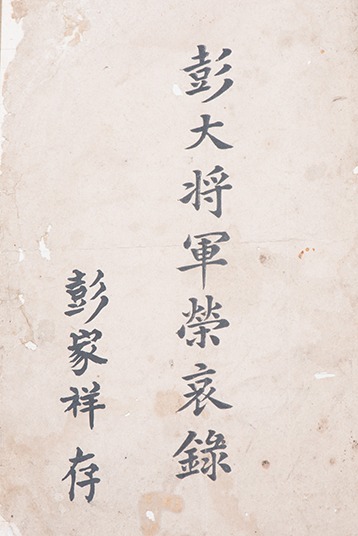 彭大将軍榮哀錄
彭家祥存